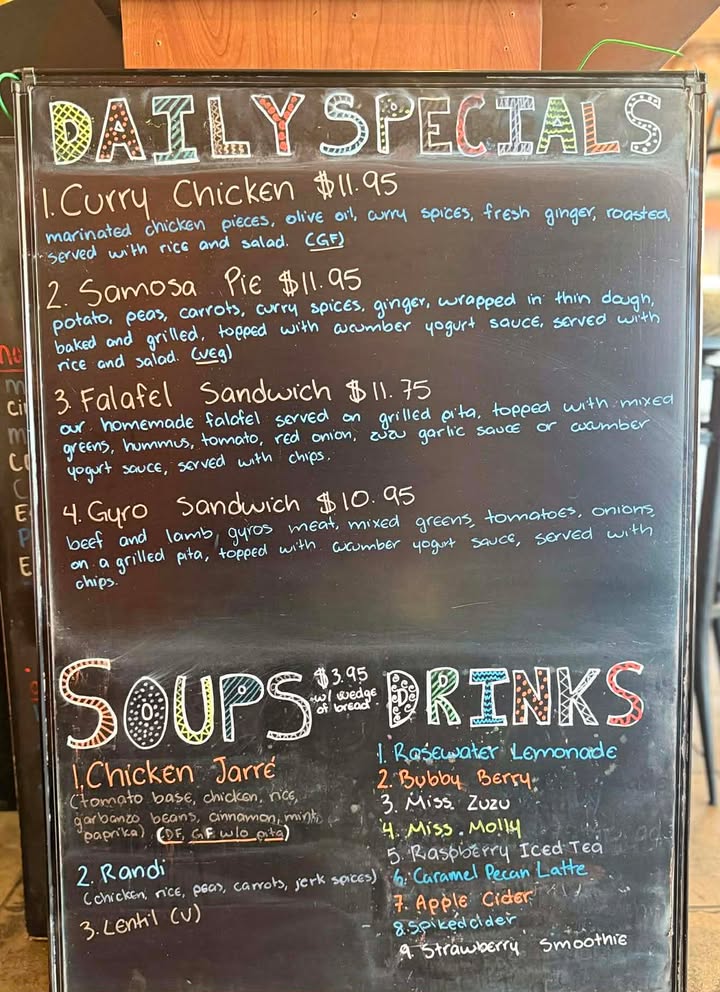 DAILY SPECIALS
1. Curry Chicken $11.95
marinated chicken pieces, olive oil, curry spices, fresh ginger, roasted,
served with rice and salad. (GF)
2. Samosa Pie $11.95
potato, peas, carrots, curry spices, ginger, wrapped in thin dough,
baked and grilled, topped with cucumber yogurt sauce, served with
rice and salad. (veg)
3. Falafel Sandwich $11.75
our homemade falafel served on grilled pita, topped with mixed
greens, hummus, tomato, red onion, zuzu garlic sauce or cucumber
yogurt sauce, served with chips.
4. Gyro Sandwich $10.95
beef and lamb gyros meat, mixed greens, tomatoes, onions,
on a grilled pita, topped with cucumber yogurt sauce, served with
chips.
SOUPS
$3.95
w/ wedge
of bread
1. Chicken Jarré
(tomato base, chicken, rice,
garbanzo beans, cinnamon, mint,
paprika) (DF, GF w/o pita)
2. Randi
(chicken, rice, peas, carrots, jerk spices)
3. Lentil (V)
DRINKS
1. Rosewater Lemonade
2. Bubby Berry
3. Miss. Zuzu
4. Miss. Molly
5. Raspberry Iced Tea
6. Caramel Pecan Latte
7. Apple Cider
8. Spiked cider
9. Strawberry Smoothie